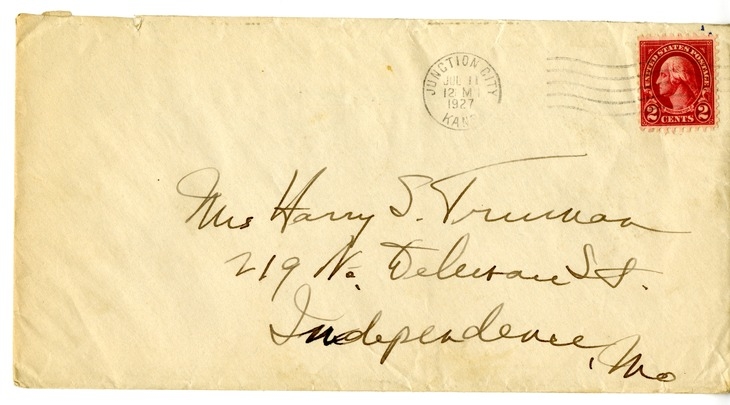 JUNCTION CITY
JUL 11
12 M
1927
KANS
UNITED STATES POSTAGE
2 CENTS 2
Mrs Harry S. Truman
219 N. Deleware St.
Independence, Mo